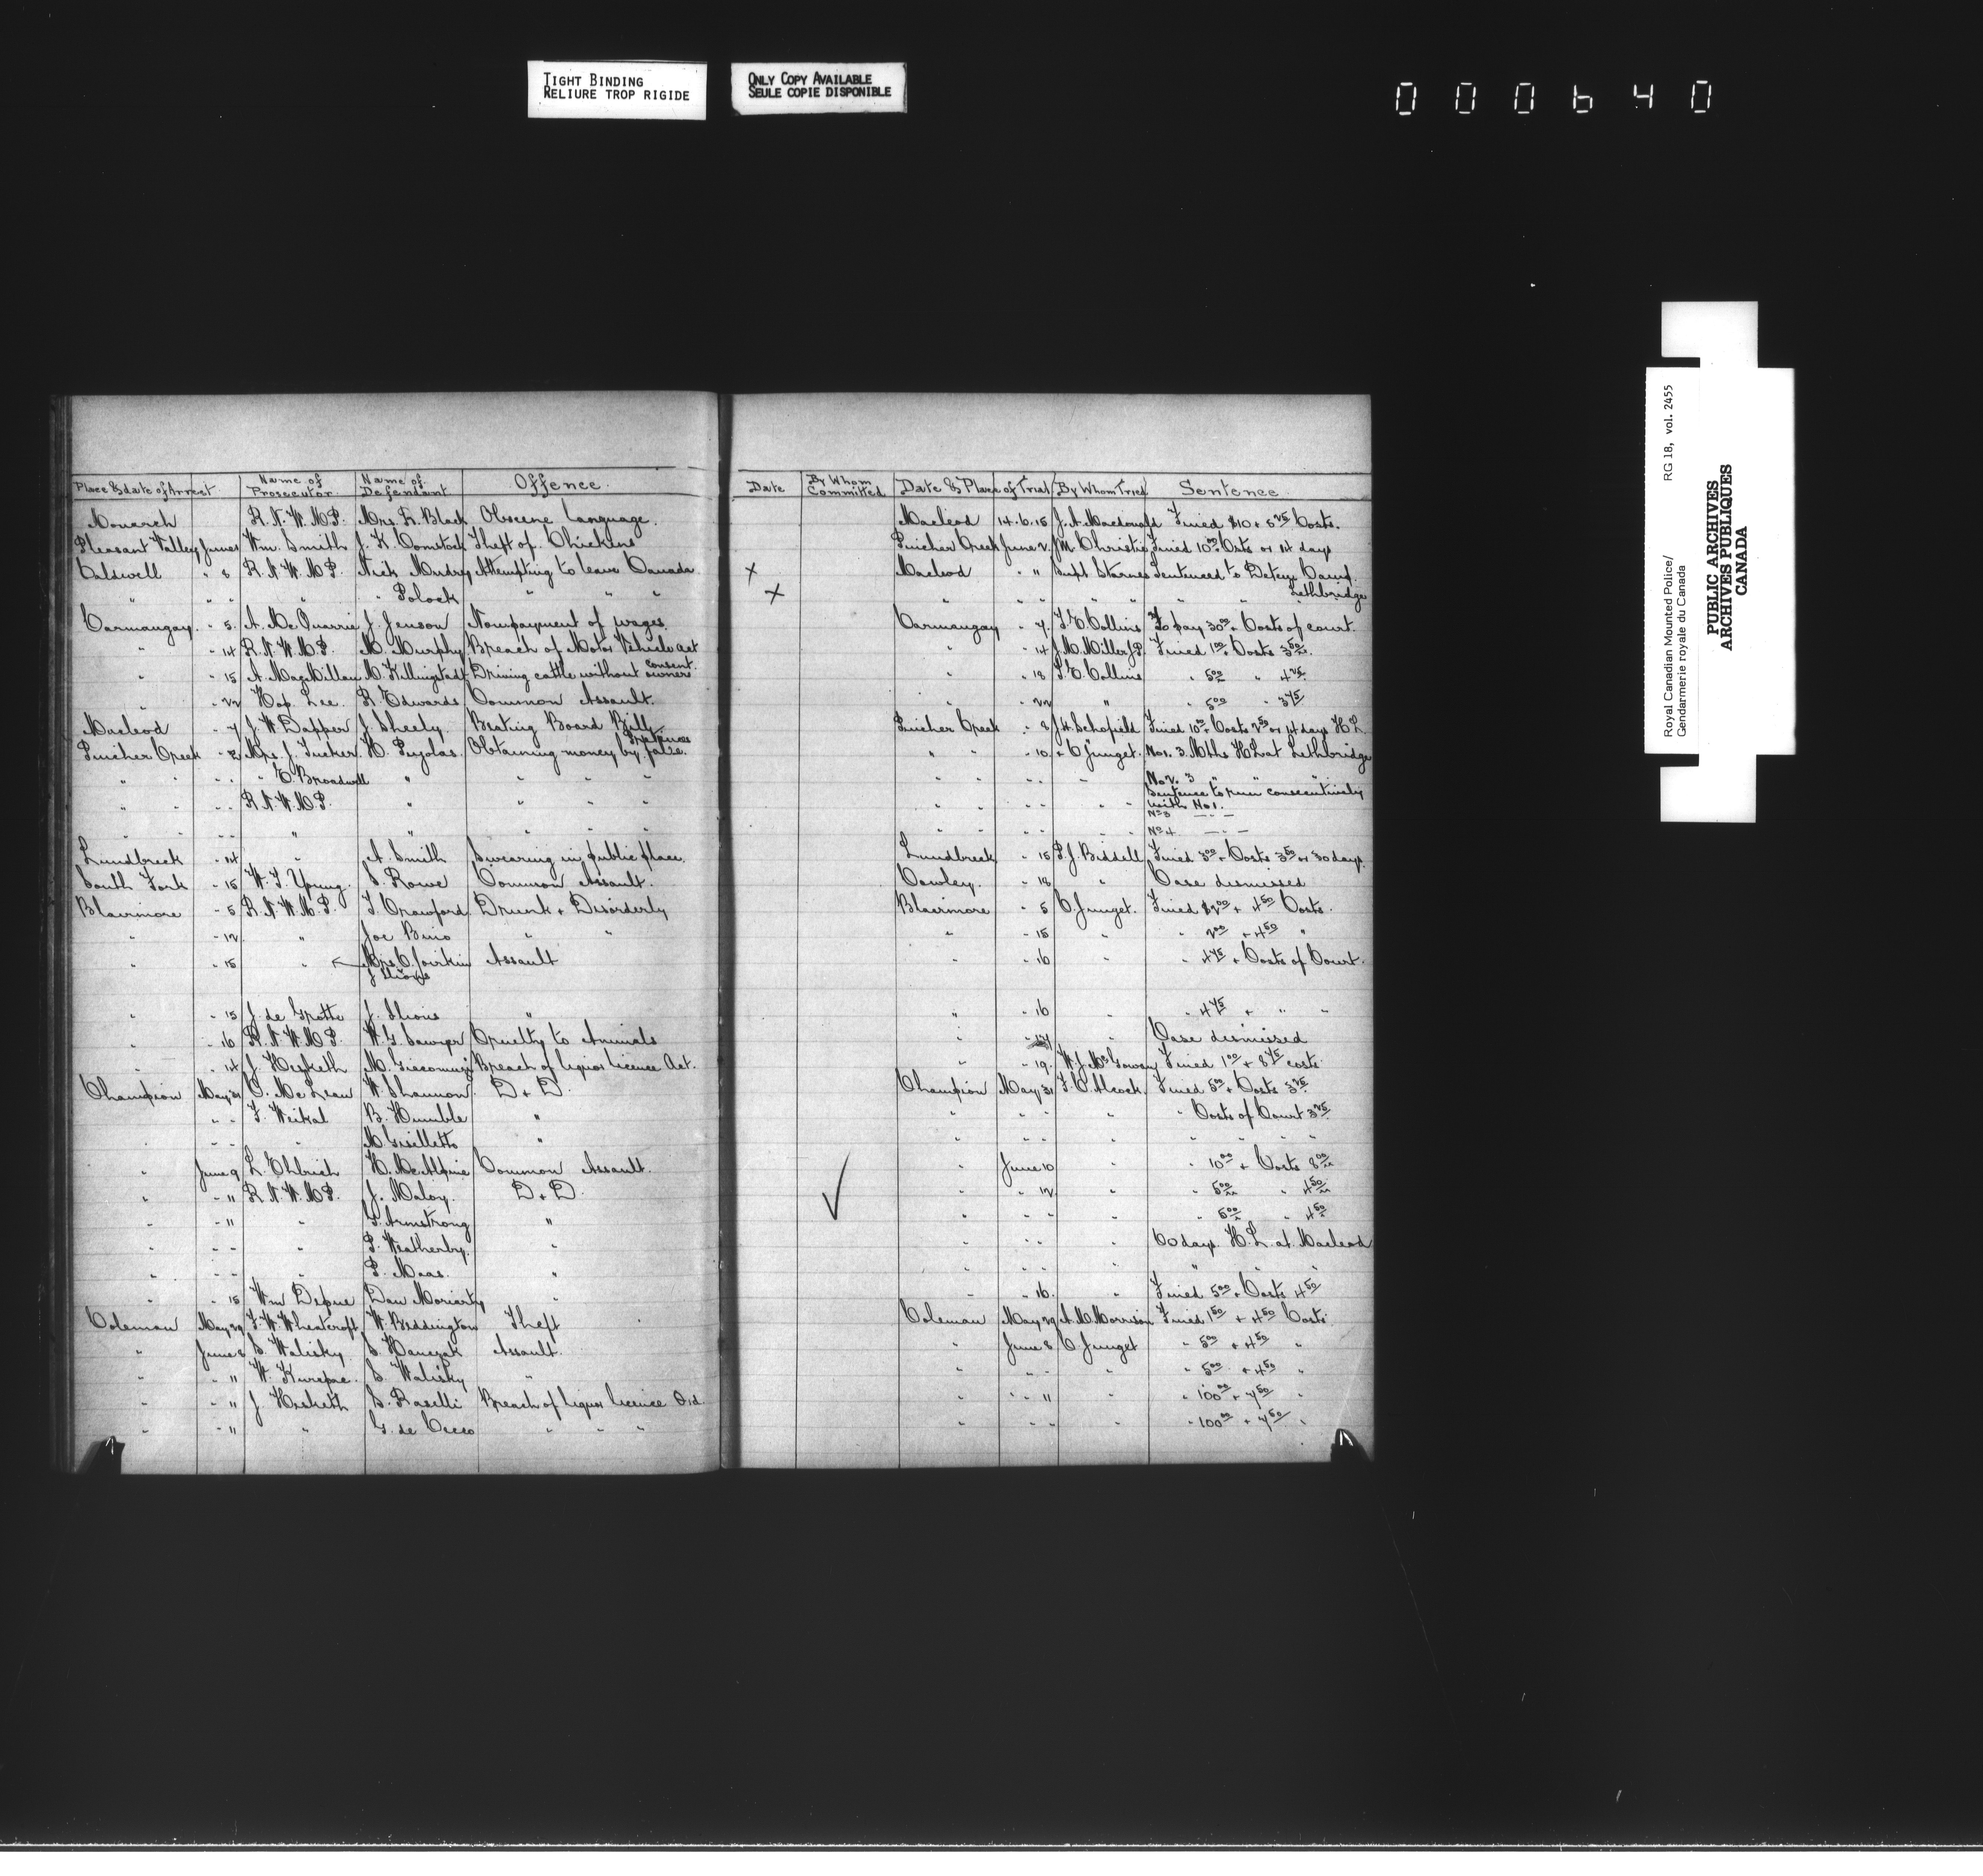 TIGHT BINDING
RELIURE TROP RIGIDE
ONLY COPY AVAILABLE
SEULE COPIE DISPONIBLE
000640
Place & date of Arrest Name of Prosecutor Name of Defendant Offence Date By Whom Committed Date & Place of Trial By Whom Tried Sentence
Monarch R.N.W.M.P. Mrs. R. Black Obscene Language. Macleod 14.6.15 J. A. Macdonald Fined $10 + 5.25 Costs.
Pleasant Valley June 1 Wm. Smith J. K. Comstock Theft of Chickens Pincher Creek June 2 J M Christie Fined 10.00 + Costs or 14 days
Caldwell " 8 R.N.W.M.P. Nick Mudry Attempting to leave Canada X Macleod " " Supt Starnes Sentenced to Camp. Lethbridge
" " " " " Polock " " " X " " " " " " "
Carmangay " 5 A. McQuarrie J. Jenson Nonpayment of wages Carmangay " 7 T. E. Collins To pay 30.00 + Costs of court.
" " 14 R.N.W.M.P. M. Murphy Breach of Motor Vehicle act " " 14 J. M. Miller J.P. Fined 1.00 + Costs 3.50
" " 15 A. MacMillan M. Killingstad Driving cattle without owners consent. " " 18 T. E. Collins " 5.00 " 4.25
" " 22 Hop Lee R. Edwards Common Assault. " " 22 " " 5.00 " 3.75
Macleod " 7 J. W. Dapper J. Sheely Beating Board Bill Pincher Creek " 8 J. H. Schofield Fined 10.00 + Costs 2.50 or 14 days H L
Pincher Creek " 2 Mrs. J. Tucker H. Pujolas Obtaining money by false Pretences " " 10 " C Junget. No 1. 3 Mths HL at Lethbridge
" " " " " E Broadwell " " " " " " " " " No 2. 3 " " "
" " " " R.N.W.M.P. " " " " " " " " " " Sentence to run consecutively with No 1.
No 3 " "
" " " " " " " " " " " " " " " No 4 " "
Lundbreck " 14 " A. Smith Swearing in public place. Lundbreck " 15 P. J. Biddell Fined 3.00 + Costs 3.50 or 30 days
South Fork " 15 W. T. Young. S. Rowe Common Assault. Cowley. " 18 " Case dismissed
Blairmore " 5 R.N.W.M.P. T. Crawford Drunk + Disorderly Blairmore " 5 C. Junget. Fined $2.00 + 4.50 Costs.
" " 12 " Joe Bino " " " " 15 " " 2.00 + 4.50 "
" " 15 " Mrs C. Joirkin Assault " " 16 " " 4.75 + Costs of Court.
" " 15 J. de Grotte " " " 16 " " 4.75 + " "
" " 16 R.N.W.M.P. W. G. Sawyer Cruelty to Animals " " " Case dismissed
" " 14 J. Hesketh M. Giacomuzzi Breach of liquor licence Act. " " 19. W. J. McGowan Fined 1.00 + 8.75 costs
Champion May 31 C. McLean W. Shannon. D + D. Champion May 31 T. C. Alcock. Fined 5.00 + Costs 3.25
" " " T. Weikal B. Humble " " " " " " Costs of Court 3.25
" " " " M Griselletto " " " " " " " " "
" June 9 L. Ehlrich H. McAlpine Common Assault. " June 10 " " 10.00 + Costs 8.00
" " 11 R.N.W.M.P. J. Maloy. D + D. ✓ " " 12 " " 5.00 " 4.50
" " 11 " G. Armstrong " " " " " " 5.00 " 4.50
" " " " P. Weatherby. " " " " " 60 days H.L. at Macleod
" " " " P. Maas. " " " " " "
" " 15 Wm Depue Dan Moriarty " " " 16. " Fined 5.00 + Costs 4.50
Coleman May 29 T. W. Wheatcroft W. Biddington Theft Coleman May 29 A. M. Morrison Fined 1.50 + 4.50 Costs
" June 8 S. Walisky S. Hanczak Assault. " June 8 C. Junget " 5.00 + 4.50 "
" " 11 W. Kurepac. S. Walisky " " " " " " 5.00 + 4.50 "
" " 11 J Hesketh S. Raselli Breach of Liquor licence Ord. " " " 11 " " 100.00 + 7.50 "
" " 11 " G. de Cecco " " " " " " " " 100.00 + 7.50 "
Royal Canadian Mounted Police/
Gendarmerie royale du Canada
RG 18, vol. 2455
PUBLIC ARCHIVES
ARCHIVES PUBLIQUES
CANADA